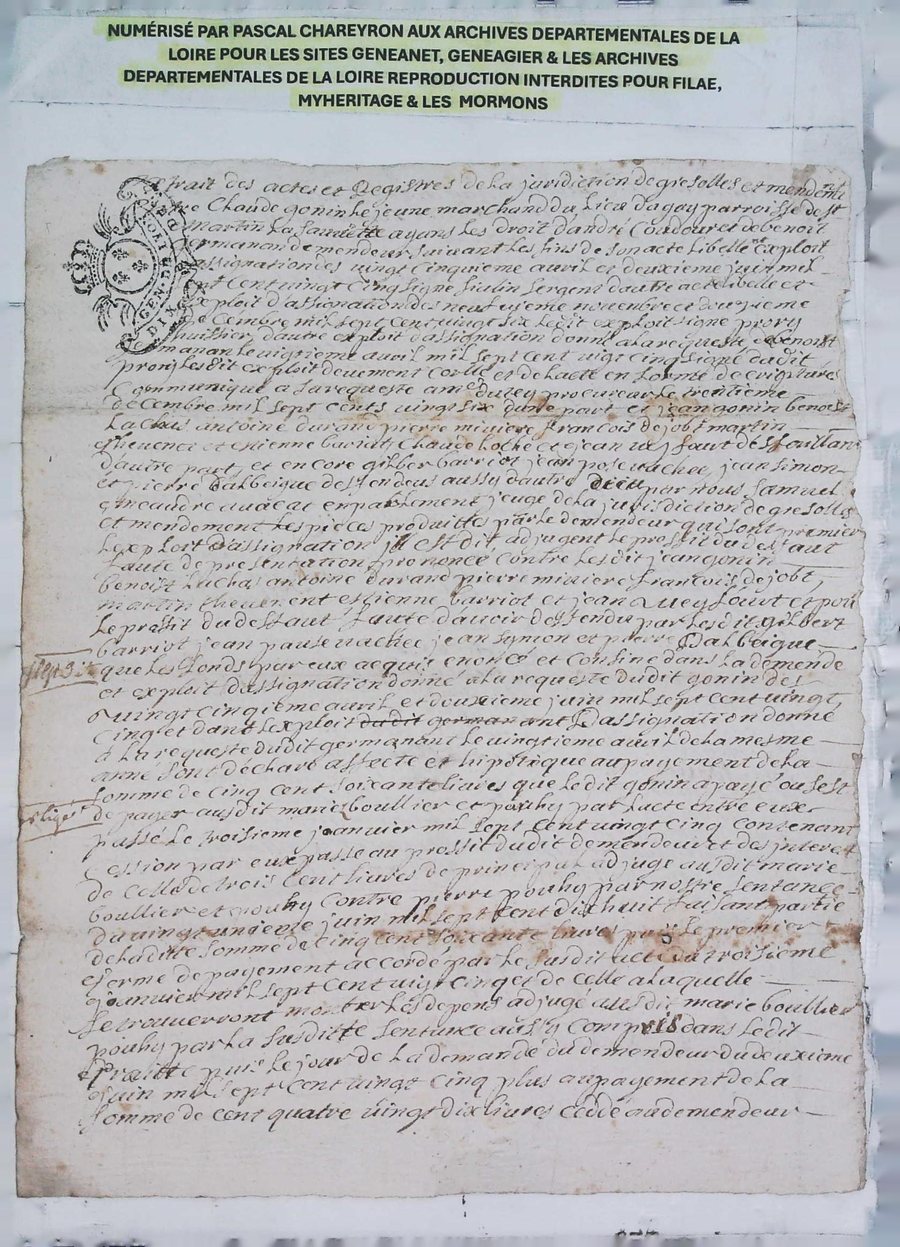 NUMÉRISÉ PAR PASCAL CHAREYRON AUX ARCHIVES DEPARTEMENTALES DE LA
LOIRE POUR LES SITES GENEANET, GENEAGIER & LES ARCHIVES
DEPARTEMENTALES DE LA LOIRE REPRODUCTION INTERDITES POUR FILAE,
MYHERITAGE & LES MORMONS
Extrait des actes et Registres de la juridiction de gresolles et mendemt
Claude gonin Le jeune marchand du Lieu parroisse de st
martin La sauuette ayans les droit d'andré Coudour et de benoit
germanan demendeur suiuant les fins de son acte libellé exploit
assignation des uingt cinquieme auril et deuxieme juin mil
sept Cent uingt Cinq signé sergent d'autre acte libellé et
exploit d'assignation des neuf uieme nouembre et douzieme
decembre mil sept cent uingt six ledit exploit signé prory
huissier, d'autre exploit d'assignation donné a la requeste de benoist
germanan le uigtieme auril mil sept cent uigt cinq signé dudit
prory les dit exploit deuement et de lacte en forme decriptures
Communiqué a sa requeste procureur le trentieme
decembre mil sept cents uingt six dune part et jean gonin benoist
Luchas antoine durand pierre miniere francois dejobt martin
theuenet et etienne barriot Claude Loche et jean
d'autre part, et encore gilber barriot jean pose uachee, jean simon
et pierre dalbeigue desfendeus aussy d'autre Dieu par nous samuel
en parlement jeuge de la jurisdiction de gresolles
et mendement Les pieces produittes par le demendeur qui sont premier
Lexploit d'assignation jl est dit adjugent le proffit du desfaut
faute de presentation prononcé contre les dit jean gonin
benoist Luchas antoine durand pierre miniere francois dejobt
martin theuenent estienne barriot et jean et pour
Le proffit du desfaut faute d'auoir desfendu par les dit gilbert
barriot jean pause uachee jean symon et pierre Dalbeigue
que les fonds par eux acquis enoncé et confiné dans la demende
et exploit d'assignation donné a la requeste dudit gonin des
uingt cinqième auril et deuxieme juin mil sept cent uingt
Cinq et dans lexploit dudit germanant d'assignation donné
a La requeste dudit germanant le uingtieme auril de la mesme
anné sont déclaré affecté et hipotique au payement de la
somme de cinq cent soixante liures que ledit gonin a payé ou sest
de payer ausdit marie boullier et pouhy par lacte entre eux
passé le troisieme jeanuier mil sept cent uingt cinq contenant
Cession par eux passé au proffit dudit demendeur et des interest
de Celle de trois Cent liures de principal adjugé ausdit marie
boullier et pouhy contre pierre pouhy par nostre sentance
du uingt unieme juin mil sept cent dix huit faisant partie
de la ditte somme de cinq cent soixante liures puis le premier
terme de payement accordé par le susdit acte du troisieme
jeanuier mil sept cent uigt cinq et de celle a laquelle
se trouuerront monter les depens adjugé ausdit marie boullier
pouhy par la susditte sentance aussy compris dans ledit
traitté puis le jour de la demande du demendeur du deuxieme
juin mil sept cent uingt cinq plus au payement de la
somme de cent quatre uingt dix liures cédé au demendeur